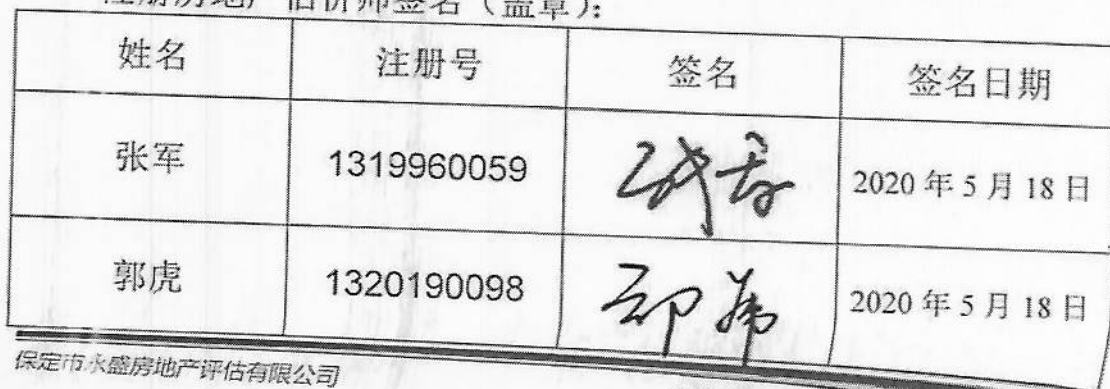 注册房地产估价师签名（盖章）：
姓名 注册号 签名 签名日期
张军 1319960059 2020年5月18日
郭虎 1320190098 郭虎 2020年5月18日
保定市永盛房地产评估有限公司